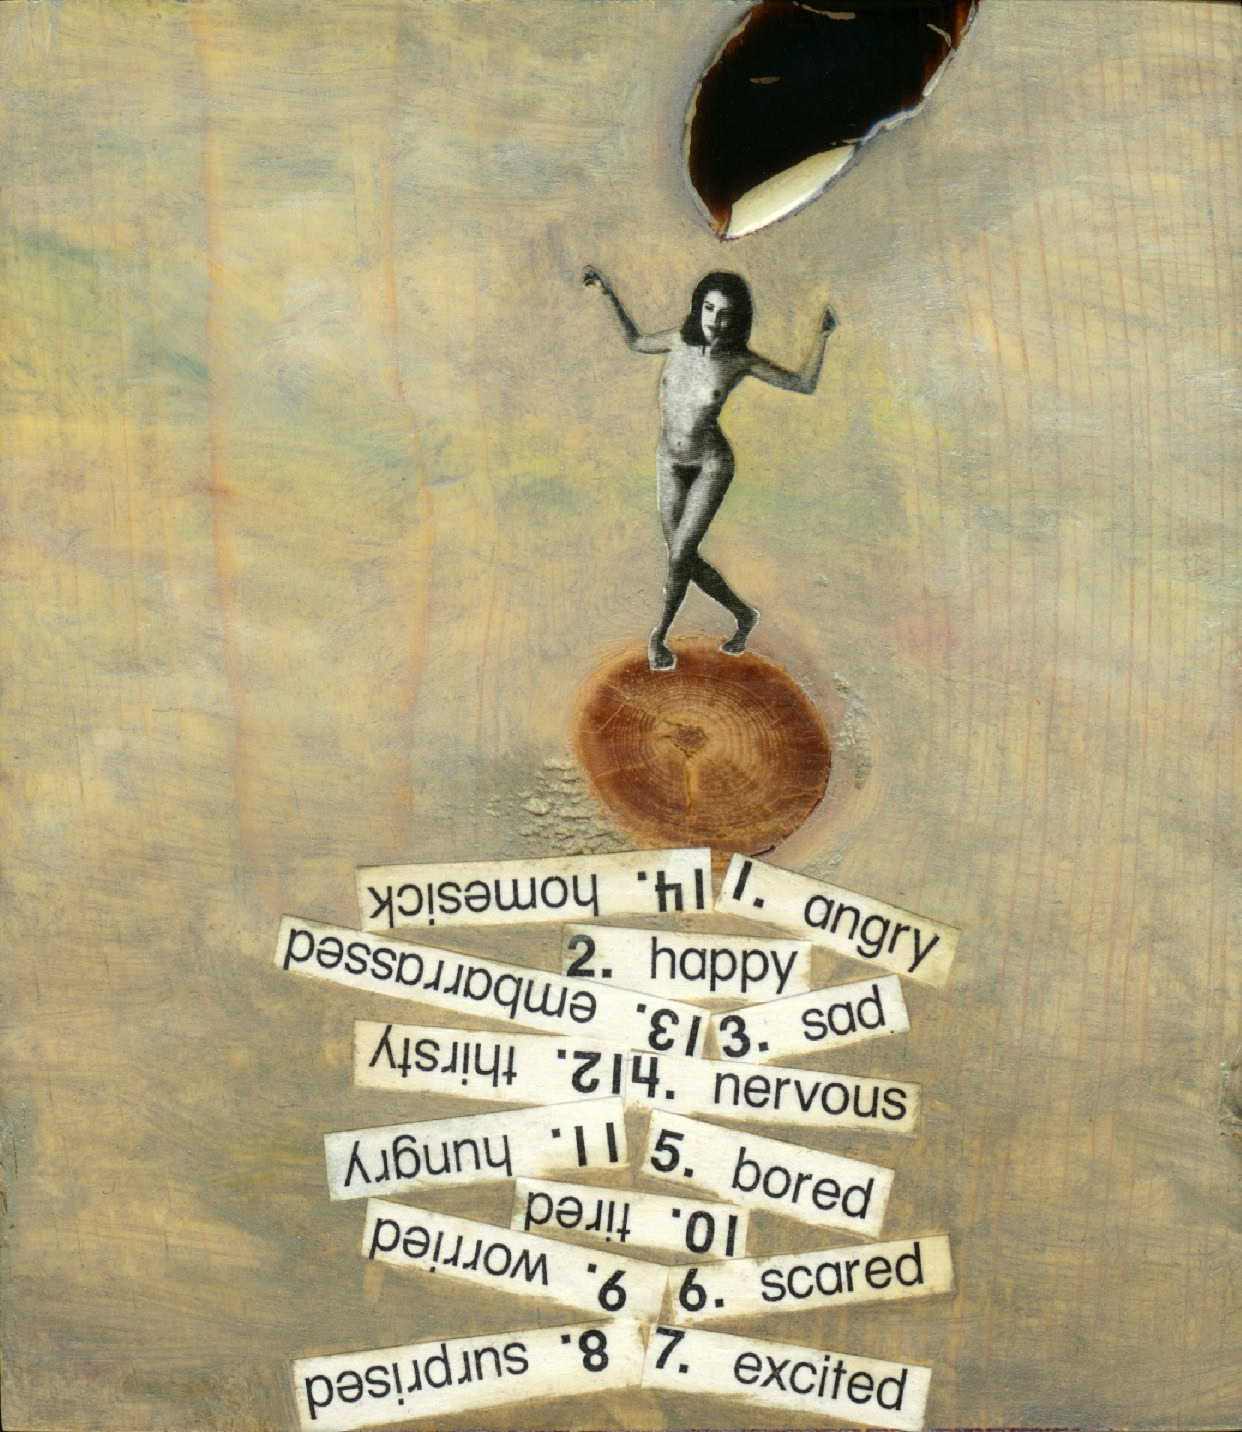 1. angry
2. happy
3. sad
4. nervous
5. bored
6. scared
7. excited
8. surprised
9. worried
10. tired
11. hungry
12. thirsty
13. embarrassed
14. homesick